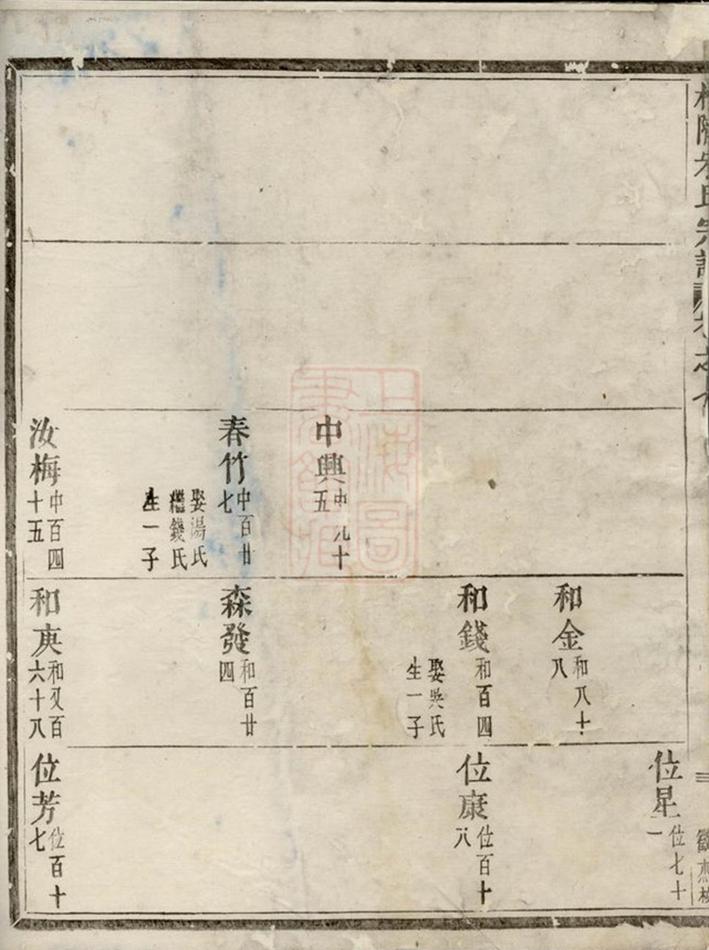 氏宗譜
中興
中九十
五
春竹
中百廿
七
娶湯氏
繼錢氏
生一子
汝梅
中百四
十五
和金
和八十
八
和錢
和百四
娶吳氏
生一子
森發
和百廿
四
和庚
和又百
六十八
位星
位七十
一
位康
位百十
八
位芳
位百十
七
上海圖
書館藏